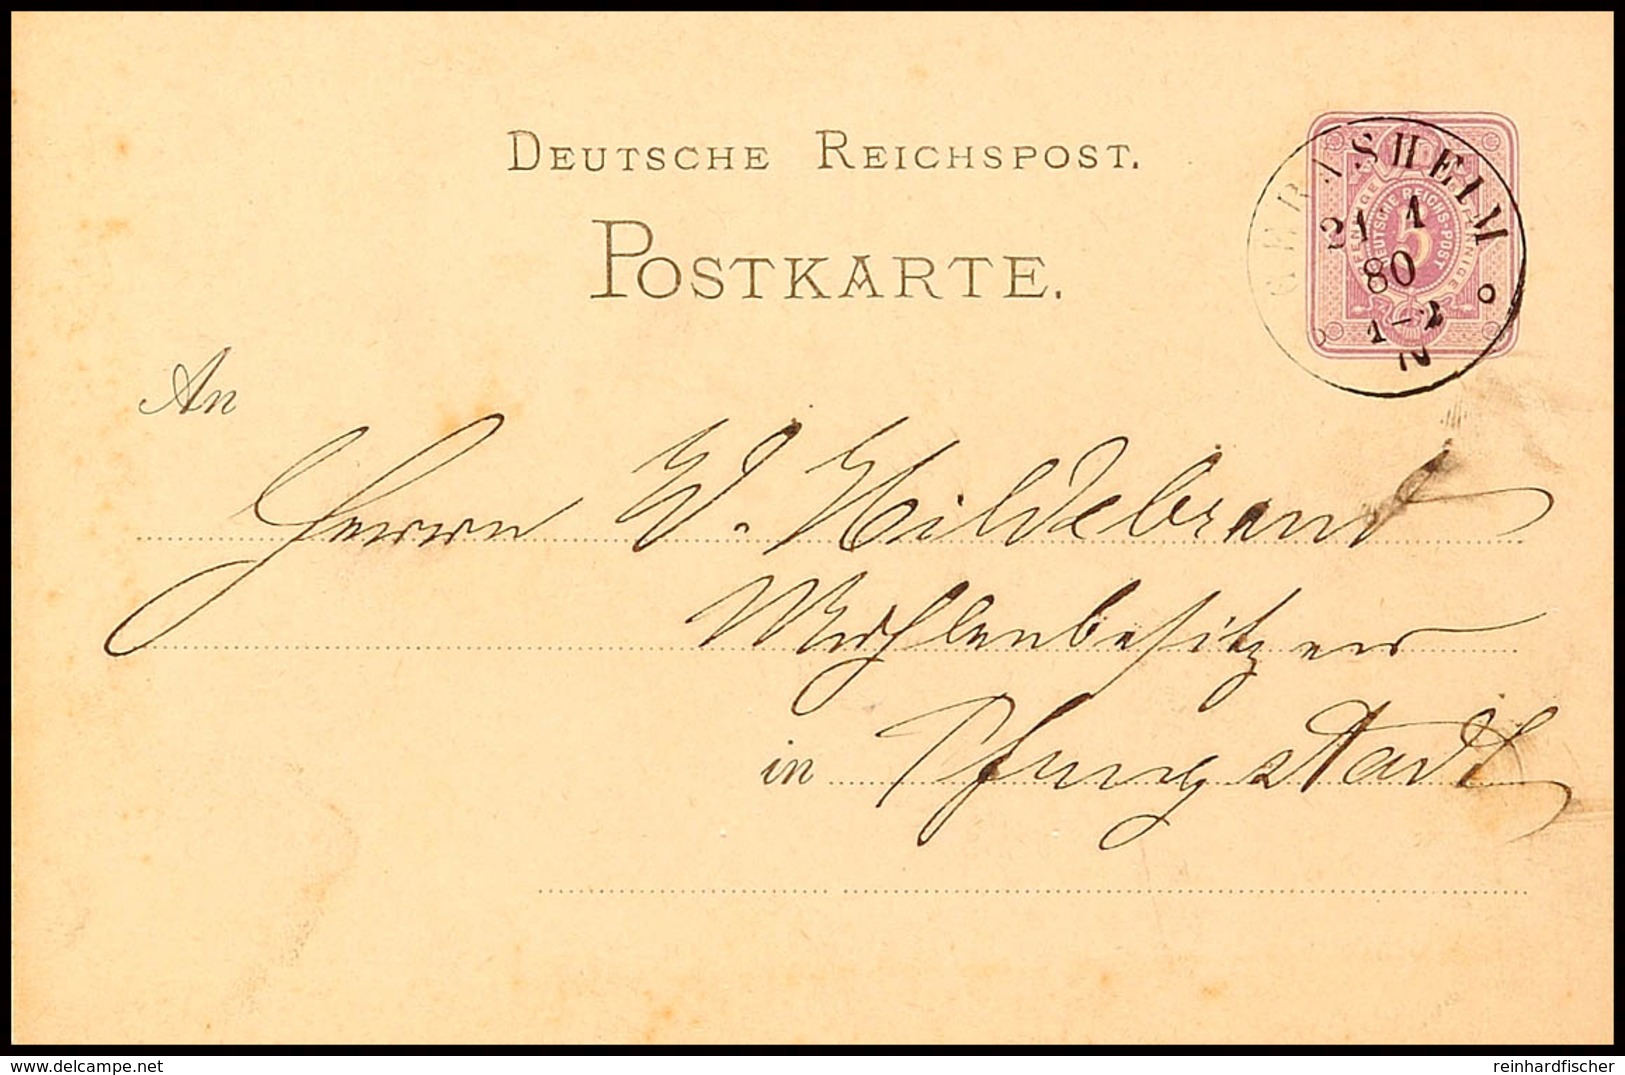 DEUTSCHE REICHSPOST.
POSTKARTE.
GERNSHEIM
21 1
80
1-2
N
PFENNIGE PFENNIGE
DEUTSCHE REICHS-POST
5
An
Herrn W. Hildebrand
Mühlenbesitzer
in Pfungstadt
delcampe.net
reinhardfischer